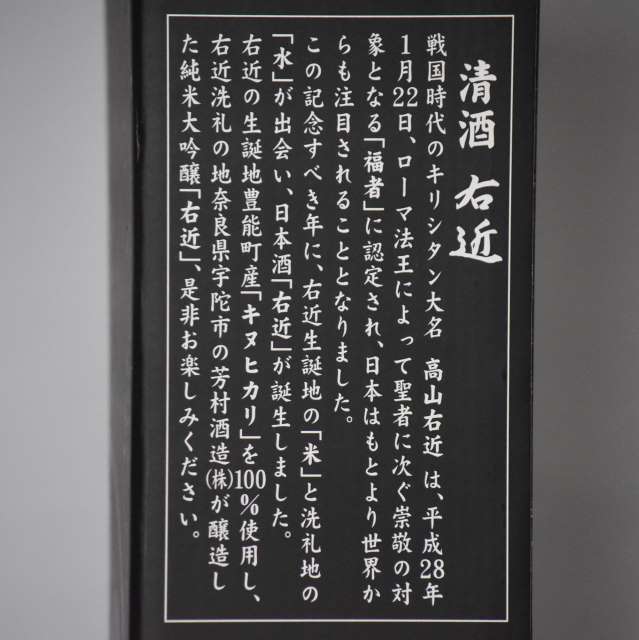 清酒 右近
戦国時代のキリシタン大名 高山右近 は、平成28年
1月22日、ローマ法王によって聖者に次ぐ崇敬の対
象となる「福者」に認定され、日本はもとより世界か
らも注目されることとなりました。
この記念すべき年に、右近生誕地の「米」と洗礼地の
「水」が出会い、日本酒「右近」が誕生しました。
右近の生誕地豊能町産「キヌヒカリ」を100%使用し、
右近洗礼の地奈良県宇陀市の芳村酒造(株)が醸造し
た純米大吟醸「右近」、是非お楽しみください。